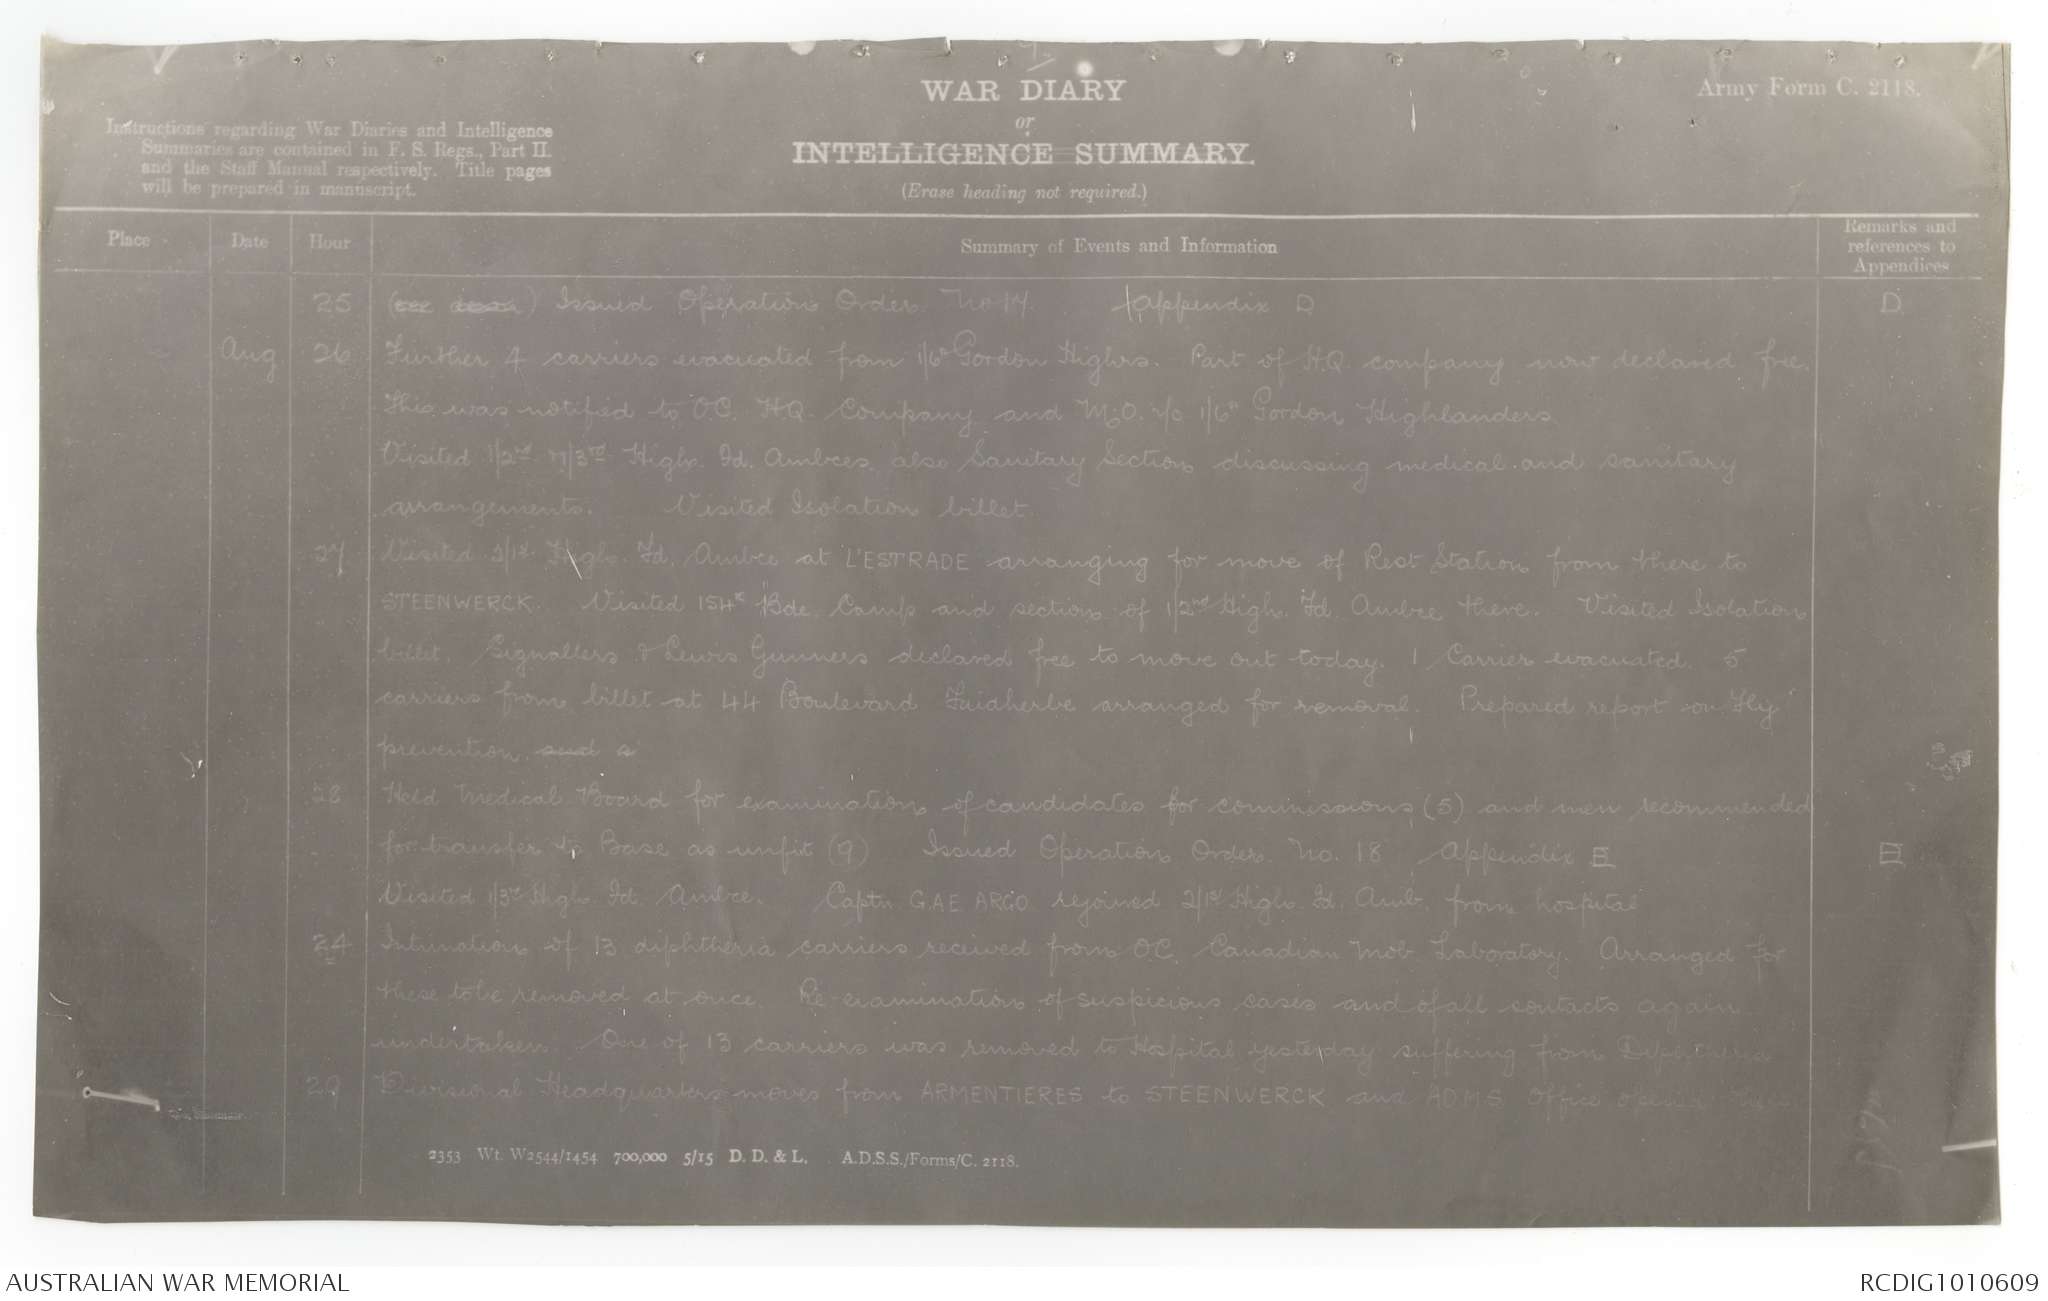 WAR DIARY
or
INTELLIGENCE SUMMARY.
(Erase heading not required.)
Army Form C. 2118.
Instructions regarding War Diaries and Intelligence
Summaries are contained in F. S. Regs., Part II.
and the Staff Manual respectively. Title pages
will be prepared in manuscript.
Place Date Hour Summary of Events and Information Remarks and references to Appendices
25 Issued Operation Order No 17. Appendix D D
Aug 26 Further 4 carriers evacuated from 1/6th Gordon Highrs. Part of H.Q. company now declared free.
This was notified to O.C. HQ. Company and M.O. i/c 1/6th Gordon Highlanders
Visited 1/2nd & 1/3rd High. Fd. Ambces. also Sanitary Section discussing medical and sanitary
arrangements. Visited Isolation billet.
27 Visited 2/1st High. Fd. Ambce at L'ESTRADE arranging for move of Rest Station from there to
STEENWERCK. Visited 154th Bde. Camp and section of 1/2nd High. Fd. Ambce there. Visited Isolation
billet. Signallers & Lewis Gunners declared free to move out today. 1 Carrier evacuated. 5
carriers from billet at 44 Boulevard Faidherbe arranged for removal. Prepared report on Fly
prevention and a
28 Held Medical Board for examination of candidates for commissions (5) and men recommended
for transfer to Base as unfit (9) Issued Operation Order No. 18 Appendix E E
Visited 1/3rd High. Fd. Ambce. Captn G.A.E. ARGO rejoined 2/1st High. Fd. Amb. from hospital
24 Intimation of 13 diphtheria carriers received from O.C. Canadian Mob Laboratory. Arranged for
these to be removed at once. Re-examination of suspicious cases and of all contacts again
undertaken. One of 13 carriers was removed to Hospital yesterday suffering from Diphtheria
29 Divisional Headquarters moves from ARMENTIERES to STEENWERCK and ADMS Office opened
2353 Wt. W2544/1454 700,000 5/15 D. D. & L. A.D.S.S./Forms/C. 2118.
AUSTRALIAN WAR MEMORIAL
RCDIG1010609